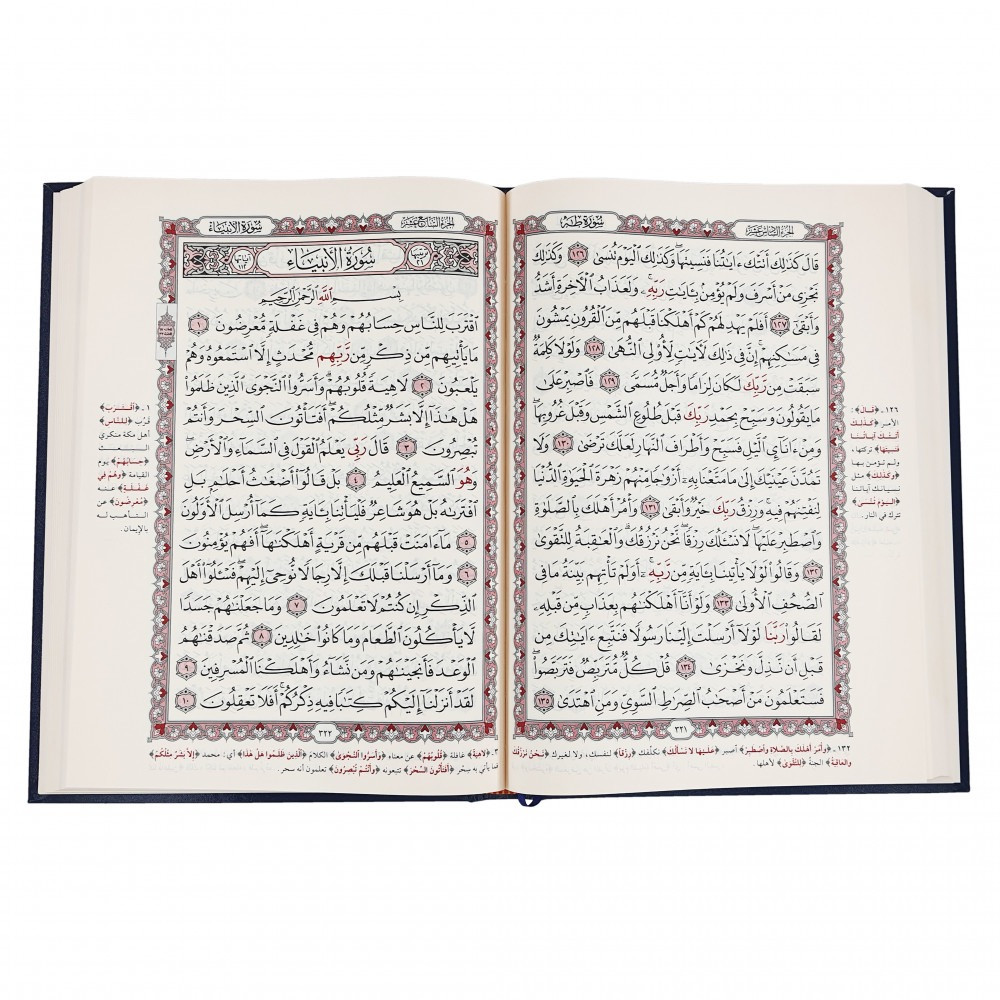 سُورَةُ طٰهٰ
الجزء السادس عشر
قَالَ كَذَٰلِكَ أَتَتْكَ ءَايَٰتُنَا فَنَسِيتَهَا ۖ وَكَذَٰلِكَ ٱلْيَوْمَ تُنسَىٰ ١٢٦ وَكَذَٰلِكَ
نَجْزِى مَنْ أَسْرَفَ وَلَمْ يُؤْمِنۢ بِـَٔايَٰتِ رَبِّهِۦ ۚ وَلَعَذَابُ ٱلْءَاخِرَةِ أَشَدُّ
وَأَبْقَىٰٓ ١٢٧ أَفَلَمْ يَهْدِ لَهُمْ كَمْ أَهْلَكْنَا قَبْلَهُم مِّنَ ٱلْقُرُونِ يَمْشُونَ
فِى مَسَٰكِنِهِمْ ۗ إِنَّ فِى ذَٰلِكَ لَءَايَٰتٍ لِّأُو۟لِى ٱلنُّهَىٰ ١٢٨ وَلَوْلَا كَلِمَةٌ
سَبَقَتْ مِن رَّبِّكَ لَكَانَ لِزَامًا وَأَجَلٌ مُّسَمًّى ١٢٩ فَٱصْبِرْ عَلَىٰ
مَا يَقُولُونَ وَسَبِّحْ بِحَمْدِ رَبِّكَ قَبْلَ طُلُوعِ ٱلشَّمْسِ وَقَبْلَ غُرُوبِهَا ۖ
وَمِنْ ءَانَآئِ ٱلَّيْلِ فَسَبِّحْ وَأَطْرَافَ ٱلنَّهَارِ لَعَلَّكَ تَرْضَىٰ ١٣٠ وَلَا
تَمُدَّنَّ عَيْنَيْكَ إِلَىٰ مَا مَتَّعْنَا بِهِۦٓ أَزْوَٰجًا مِّنْهُمْ زَهْرَةَ ٱلْحَيَوٰةِ ٱلدُّنْيَا
لِنَفْتِنَهُمْ فِيهِ ۚ وَرِزْقُ رَبِّكَ خَيْرٌ وَأَبْقَىٰ ١٣١ وَأْمُرْ أَهْلَكَ بِٱلصَّلَوٰةِ
وَٱصْطَبِرْ عَلَيْهَا ۖ لَا نَسْـَٔلُكَ رِزْقًا ۖ نَّحْنُ نَرْزُقُكَ ۗ وَٱلْعَٰقِبَةُ لِلتَّقْوَىٰ
١٣٢ وَقَالُوا۟ لَوْلَا يَأْتِينَا بِـَٔايَةٍ مِّن رَّبِّهِۦٓ ۚ أَوَلَمْ تَأْتِهِم بَيِّنَةُ مَا فِى
ٱلصُّحُفِ ٱلْأُولَىٰ ١٣٣ وَلَوْ أَنَّآ أَهْلَكْنَٰهُم بِعَذَابٍ مِّن قَبْلِهِۦ
لَقَالُوا۟ رَبَّنَا لَوْلَآ أَرْسَلْتَ إِلَيْنَا رَسُولًا فَنَتَّبِعَ ءَايَٰتِكَ مِن
قَبْلِ أَن نَّذِلَّ وَنَخْزَىٰ ١٣٤ قُلْ كُلٌّ مُّتَرَبِّصٌ فَتَرَبَّصُوا۟ ۖ
فَسَتَعْلَمُونَ مَنْ أَصْحَٰبُ ٱلصِّرَٰطِ ٱلسَّوِىِّ وَمَنِ ٱهْتَدَىٰ ١٣٥
٣٢١
١٢٦ـ ﴿قال﴾:
الأمر ﴿كذلك
أتتك آياتنا
فنسيتها﴾ تركتها،
ولم تؤمن بها
﴿وكذلك﴾ مثل
نسيانك آياتنا
﴿اليوم تنسى﴾
تترك في النار.
١٣٢ـ ﴿وأمر أهلك بالصلاة واصطبر﴾ اصبر ﴿عليها لا نسألك﴾ نكلفك ﴿رزقاً﴾ لنفسك، ولا لغيرك ﴿نحن نرزقك
والعاقبة﴾ الجنة ﴿للتقوى﴾ لأهلها.
سُورَةُ الأَنْبِيَاءِ
الجزء السابع عشر
سُورَةُ الأَنْبِيَاءِ
آياتها
١١٢
ترتيبها
٢١
بِسْمِ ٱللَّهِ ٱلرَّحْمَٰنِ ٱلرَّحِيمِ
ٱقْتَرَبَ لِلنَّاسِ حِسَابُهُمْ وَهُمْ فِى غَفْلَةٍ مُّعْرِضُونَ ١
مَا يَأْتِيهِم مِّن ذِكْرٍ مِّن رَّبِّهِم مُّحْدَثٍ إِلَّا ٱسْتَمَعُوهُ وَهُمْ
يَلْعَبُونَ ٢ لَاهِيَةً قُلُوبُهُمْ ۗ وَأَسَرُّوا۟ ٱلنَّجْوَى ٱلَّذِينَ ظَلَمُوا۟
هَلْ هَٰذَآ إِلَّا بَشَرٌ مِّثْلُكُمْ ۖ أَفَتَأْتُونَ ٱلسِّحْرَ وَأَنتُمْ
تُبْصِرُونَ ٣ قَالَ رَبِّى يَعْلَمُ ٱلْقَوْلَ فِى ٱلسَّمَآءِ وَٱلْأَرْضِ ۖ
وَهُوَ ٱلسَّمِيعُ ٱلْعَلِيمُ ٤ بَلْ قَالُوٓا۟ أَضْغَٰثُ أَحْلَٰمٍۭ بَلِ
ٱفْتَرَىٰهُ بَلْ هُوَ شَاعِرٌ فَلْيَأْتِنَا بِـَٔايَةٍ كَمَآ أُرْسِلَ ٱلْأَوَّلُونَ
٥ مَآ ءَامَنَتْ قَبْلَهُم مِّن قَرْيَةٍ أَهْلَكْنَٰهَآ ۖ أَفَهُمْ يُؤْمِنُونَ
٦ وَمَآ أَرْسَلْنَا قَبْلَكَ إِلَّا رِجَالًا نُّوحِىٓ إِلَيْهِمْ ۖ فَسْـَٔلُوٓا۟ أَهْلَ
ٱلذِّكْرِ إِن كُنتُمْ لَا تَعْلَمُونَ ٧ وَمَا جَعَلْنَٰهُمْ جَسَدًا
لَّا يَأْكُلُونَ ٱلطَّعَامَ وَمَا كَانُوا۟ خَٰلِدِينَ ٨ ثُمَّ صَدَقْنَٰهُمُ
ٱلْوَعْدَ فَأَنجَيْنَٰهُمْ وَمَن نَّشَآءُ وَأَهْلَكْنَا ٱلْمُسْرِفِينَ ٩
لَقَدْ أَنزَلْنَآ إِلَيْكُمْ كِتَٰبًا فِيهِ ذِكْرُكُمْ ۖ أَفَلَا تَعْقِلُونَ ١٠
٣٢٢
١ـ ﴿اقترب﴾
قرُب ﴿للناس﴾
أهل مكة منكري
البعث
﴿حسابهم﴾ يوم
القيامة ﴿وهم في
غفلة﴾ عنه
﴿معرضون﴾ عن
التأهب له
بالإيمان.
٣ـ ﴿لاهية﴾ غافلة ﴿قلوبهم﴾ عن معناه ﴿وأسروا النجوى﴾ الكلام ﴿الذين ظلموا هل هذا﴾ أي: محمد ﴿إلا بشر مثلكم﴾
فما يأتي به سحر ﴿أفتأتون السحر﴾ تتبعونه ﴿وأنتم تبصرون﴾ تعلمون أنه سحر.